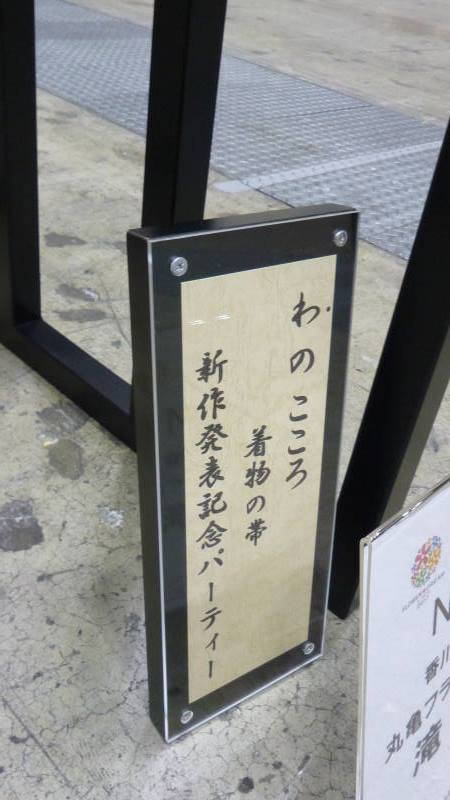 わのこころ
着物の帯
新作発表記念パーティー
香川
丸亀フラ
滝